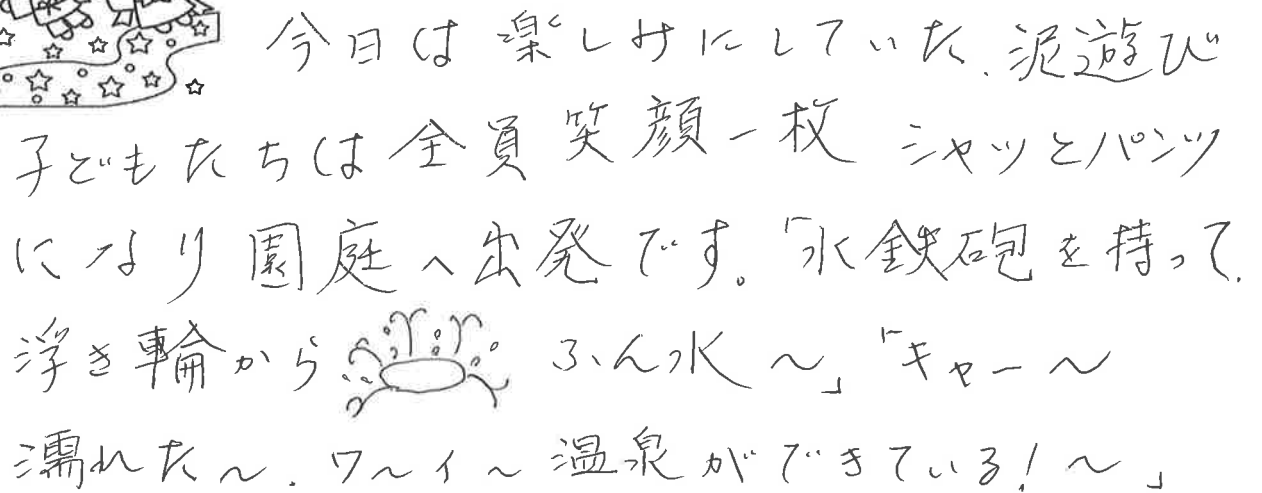 今日は楽しみにしていた、泥遊び
子どもたちは全員笑顔一枚 シャツとパンツ
になり園庭へ出発です。「水鉄砲を持って、
浮き輪から ふん水～」「キャー～
濡れた～、ワ～イ～温泉ができている!～」